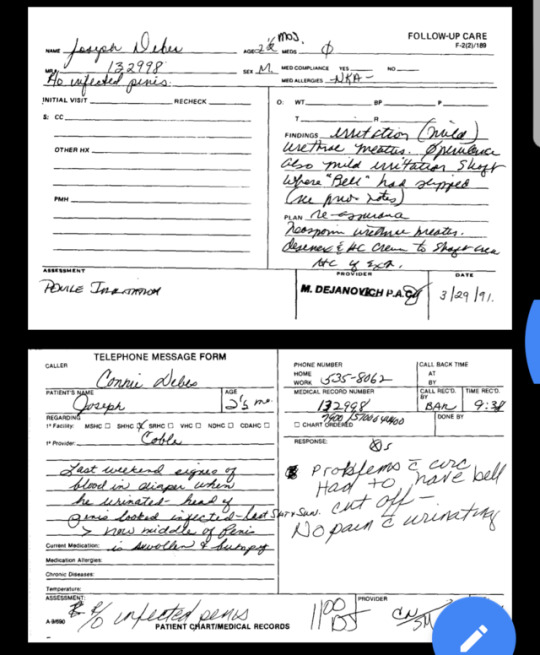 FOLLOW-UP CARE
F-2(2)/189
NAME Joseph Debes AGE 2½ mos. MEDS ϕ
MR# 132998 SEX M. MED COMPLIANCE YES NO
MED ALLERGIES NKA-
infected penis
INITIAL VISIT RECHECK
S: CC
OTHER HX
PMH
O: WT. BP P
T. R.
FINDINGS irritation (mild)
urethral meatus.
also mild irritation shaft
where "Bell" had slipped
(see prev notes)
PLAN re-assurance
Neosporin urethral meatus.
& HC cream to shaft area
ASSESSMENT
Penile Irritation
PROVIDER
M. DEJANOVICH P.A.
DATE
3/29/91.
TELEPHONE MESSAGE FORM
CALLER
Connie Debes
PATIENT'S NAME
Joseph
AGE
2½ mo.
PHONE NUMBER
HOME
WORK 535-8062
CALL BACK TIME
AT
BY
MEDICAL RECORD NUMBER
132998
CALL REC'D. BY
BAR
TIME REC'D.
9:38
REGARDING
1° Facility: MSHC SHHC X SRHC VHC NDHC CDAHC
1° Provider: Cobla
CHART ORDERED
DONE BY
RESPONSE:
Last weekend signs of
blood in diaper when
he urinated - head of
penis looked infected - last Sat & Sun.
> now middle of Penis
is swollen & bumpy
Problems c circ
Had to have bell
cut off -
No pain c urinating
Current Medication:
Medication Allergies:
Chronic Diseases:
Temperature:
ASSESSMENT:
c/o infected penis
1100
DJ
PROVIDER
A-9/890
PATIENT CHART/MEDICAL RECORDS